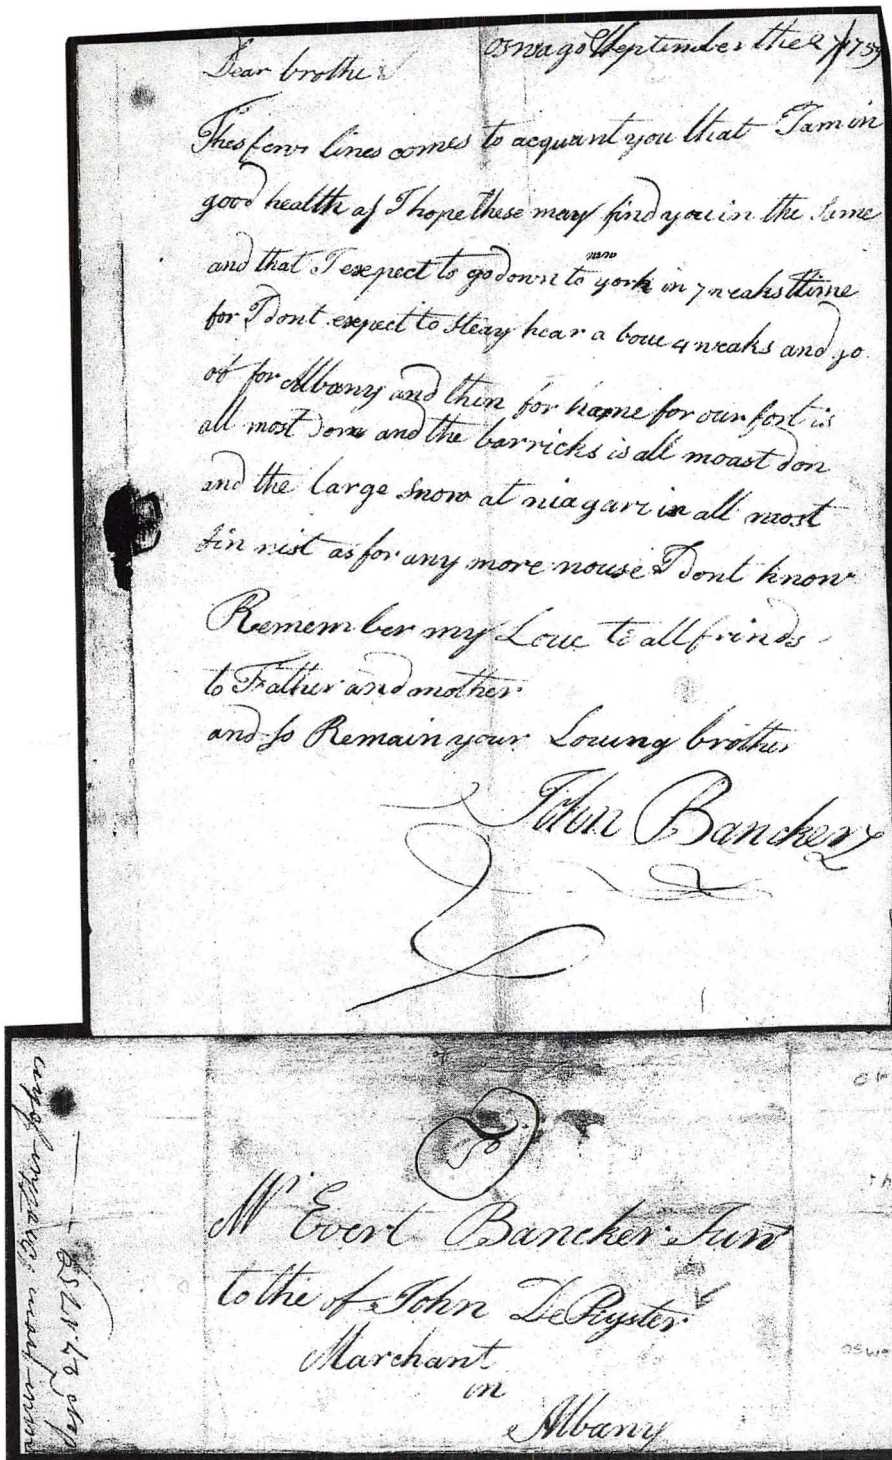 oswago September the 27 1759
Dear brother
Thes few lines comes to acquant you that I am in
good health as I hope these may find you in the same
and that I expect to go down to new york in 7 weaks time
for I dont expect to steay hear a boue 4 weaks and go
of for Albany and then for hame for our fort is
all most don and the barricks is all moast don
and the large snow at niagare is all most
fin nist as for any more nouse I dont know
Remember my Loue to all frinds
to Father and mother
and so Remain your Louing brother
John Bancker
To
Mr Evert Bancker Junr
to the of John DePuyster
Marchant
in
Albany